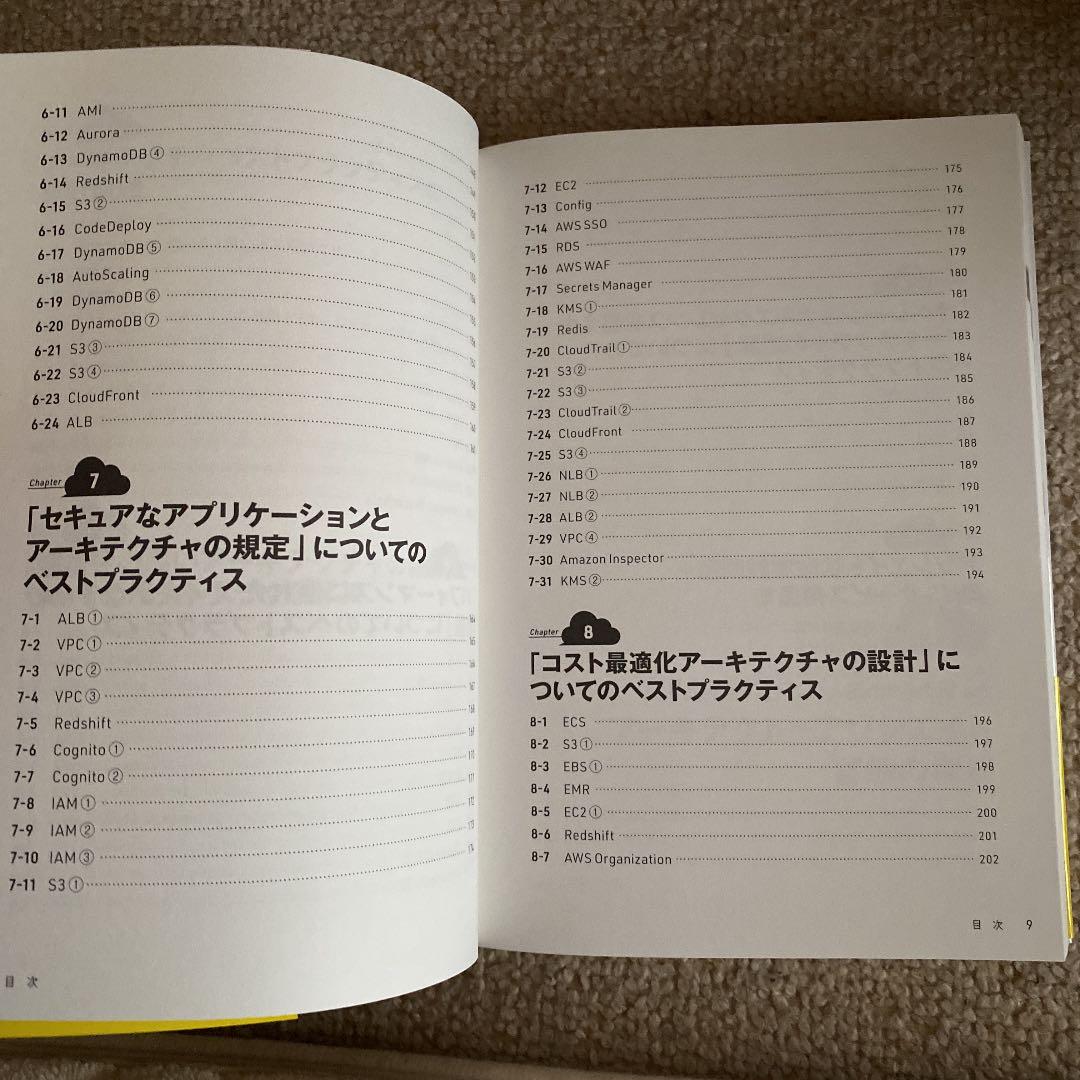 6-11 AMI
6-12 Aurora
6-13 DynamoDB④
6-14 Redshift
6-15 S3②
6-16 CodeDeploy
6-17 DynamoDB⑤
6-18 AutoScaling
6-19 DynamoDB⑥
6-20 DynamoDB⑦
6-21 S3③
6-22 S3④
6-23 CloudFront
6-24 ALB
Chapter 7
「セキュアなアプリケーションと
アーキテクチャの規定」についての
ベストプラクティス
7-1 ALB① 164
7-2 VPC① 165
7-3 VPC② 166
7-4 VPC③ 167
7-5 Redshift 168
7-6 Cognito①
7-7 Cognito②
7-8 IAM①
7-9 IAM② 172
7-10 IAM③ 173
7-11 S3① 174
目 次
7-12 EC2 175
7-13 Config 176
7-14 AWS SSO 177
7-15 RDS 178
7-16 AWS WAF 179
7-17 Secrets Manager 180
7-18 KMS① 181
7-19 Redis 182
7-20 CloudTrail① 183
7-21 S3② 184
7-22 S3③ 185
7-23 CloudTrail② 186
7-24 CloudFront 187
7-25 S3④ 188
7-26 NLB① 189
7-27 NLB② 190
7-28 ALB② 191
7-29 VPC④ 192
7-30 Amazon Inspector 193
7-31 KMS② 194
Chapter 8
「コスト最適化アーキテクチャの設計」に
ついてのベストプラクティス
8-1 ECS 196
8-2 S3① 197
8-3 EBS① 198
8-4 EMR 199
8-5 EC2① 200
8-6 Redshift 201
8-7 AWS Organization 202
目 次 9